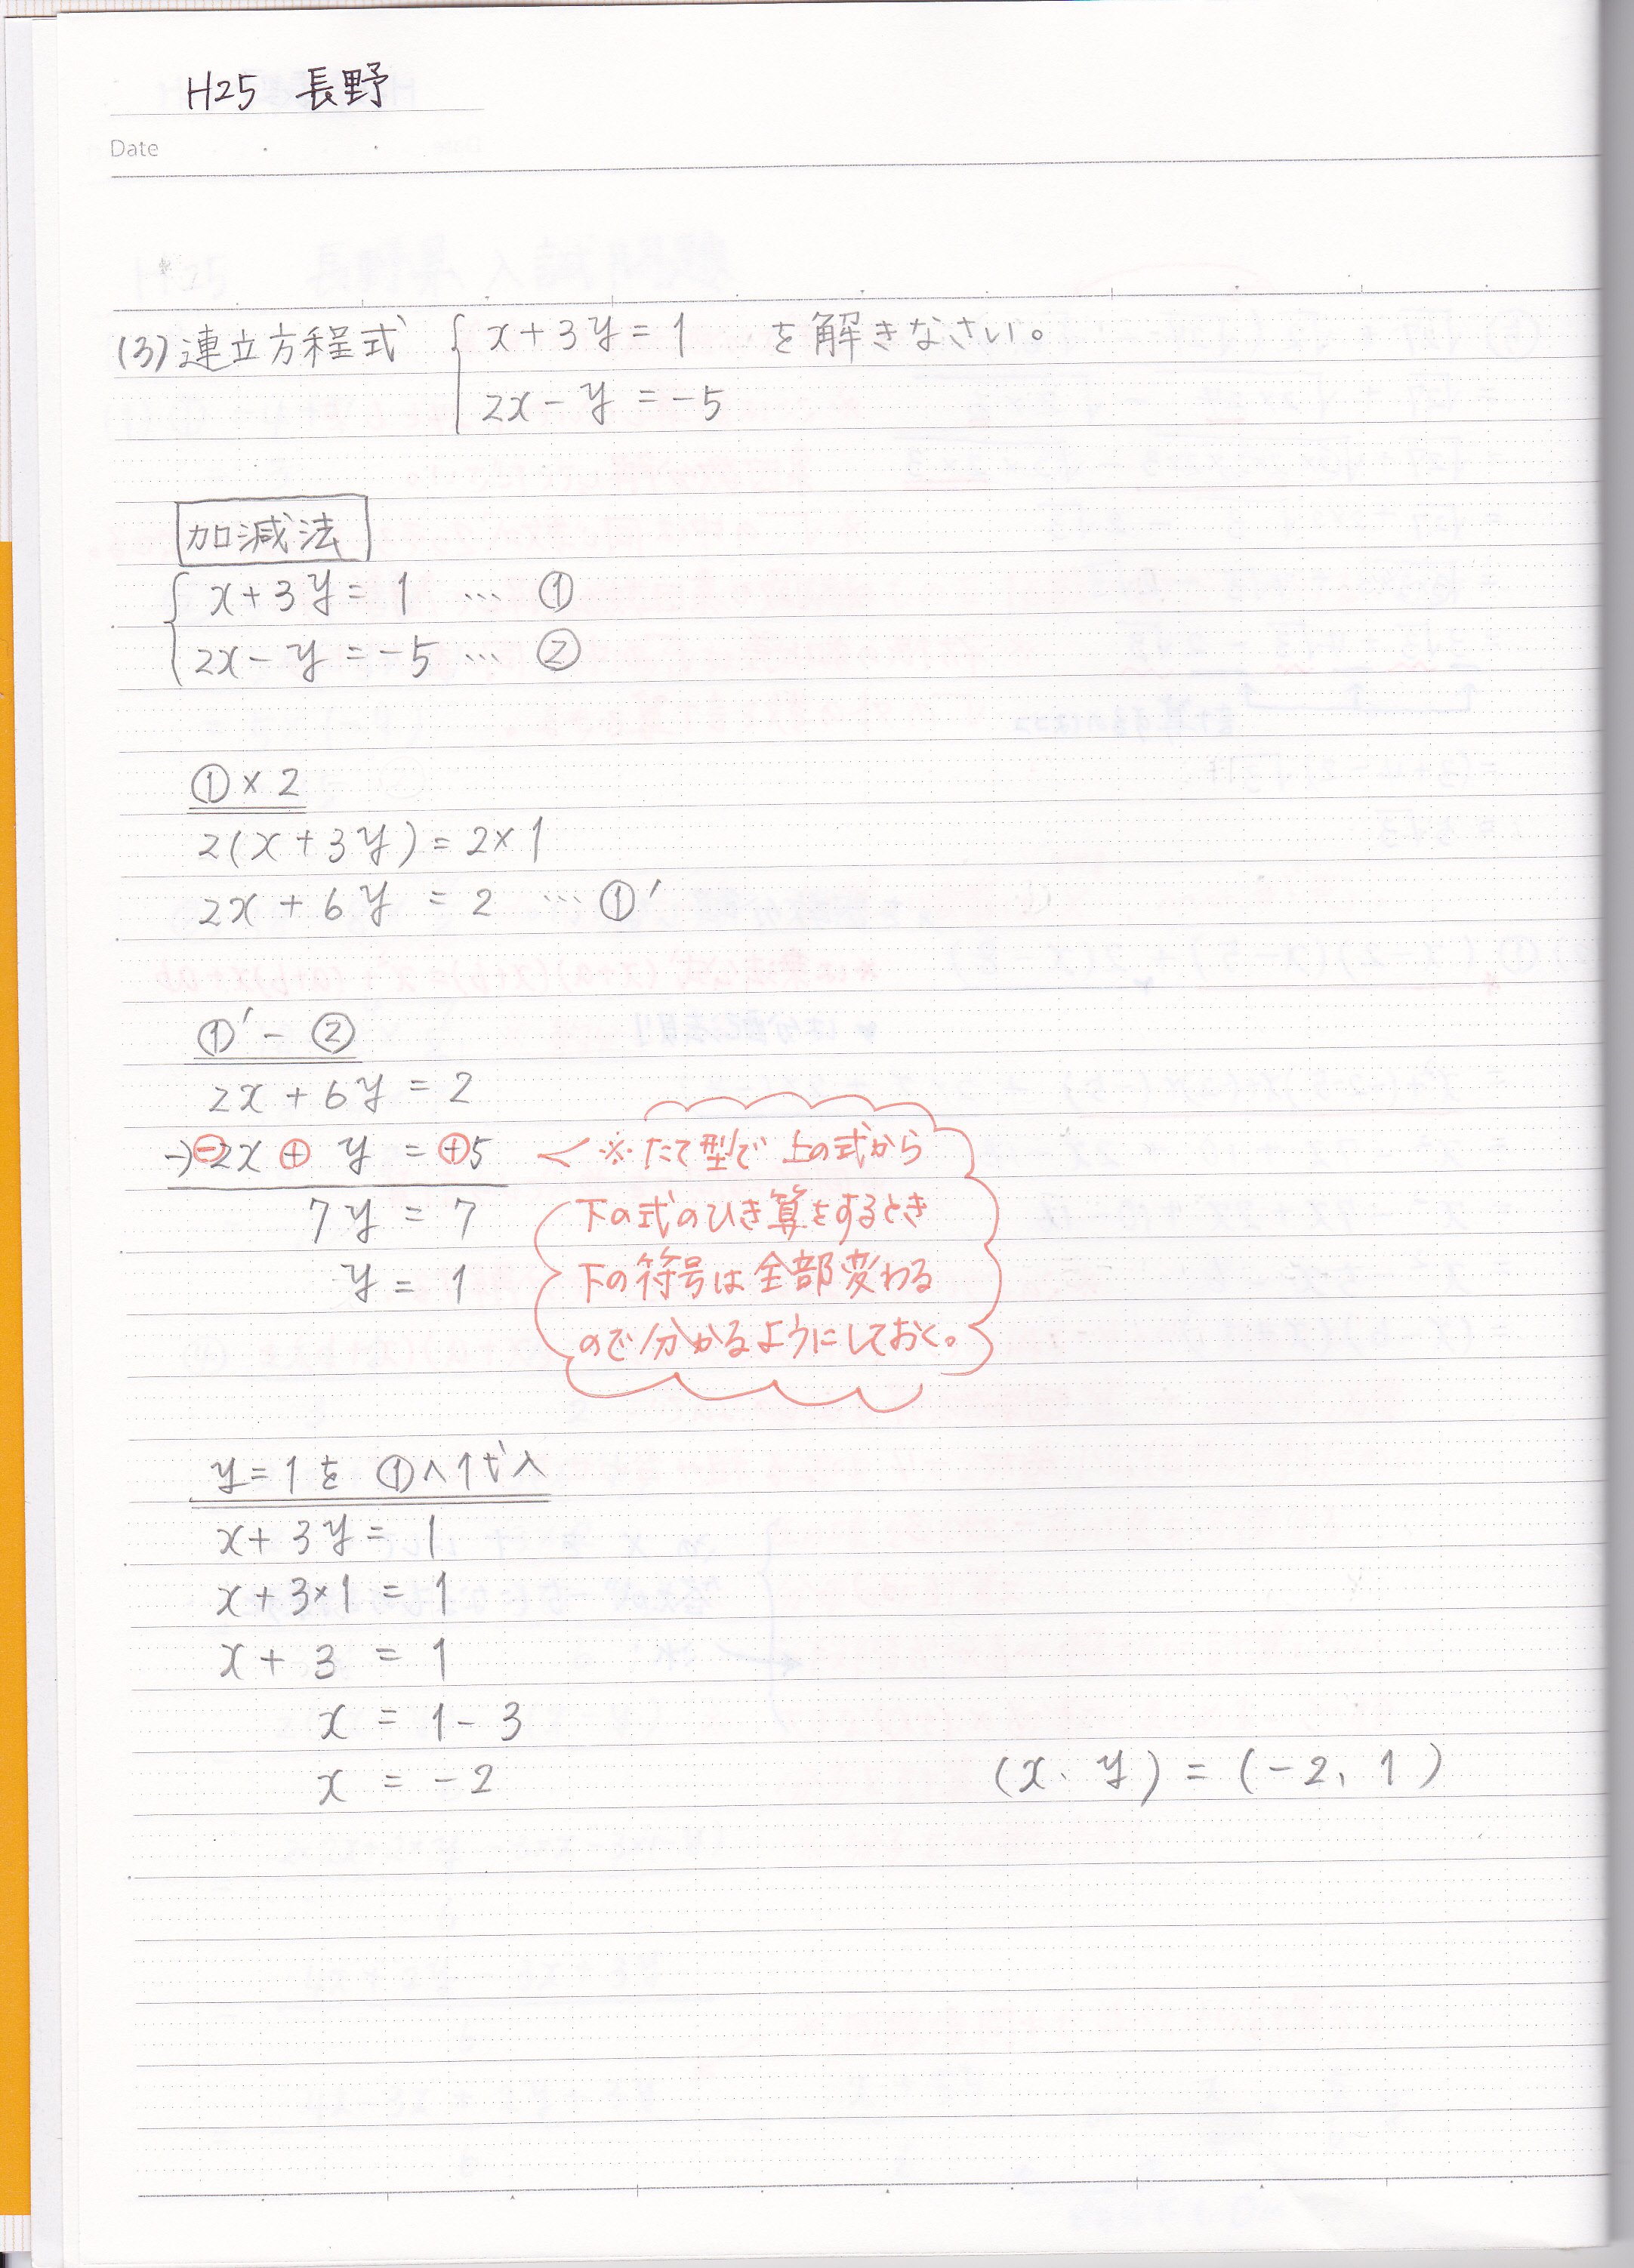 H25 長野
Date
(3)連立方程式 { x+3y=1 を解きなさい。
2x-y=-5
加減法
{ x+3y=1 … ①
2x-y=-5 … ②
①×2
2(x+3y)=2×1
2x+6y=2 …①′
①′-②
2x+6y=2
-)⊖2x⊕y=⊕5 ※たて型で上の式から
下の式のひき算をするとき
7y=7
下の符号は全部変わる
y=1
ので分かるようにしておく。
y=1を①へ代入
x+3y=1
x+3×1=1
x+3=1
x=1-3
x=-2
(x、y)=(-2、1)